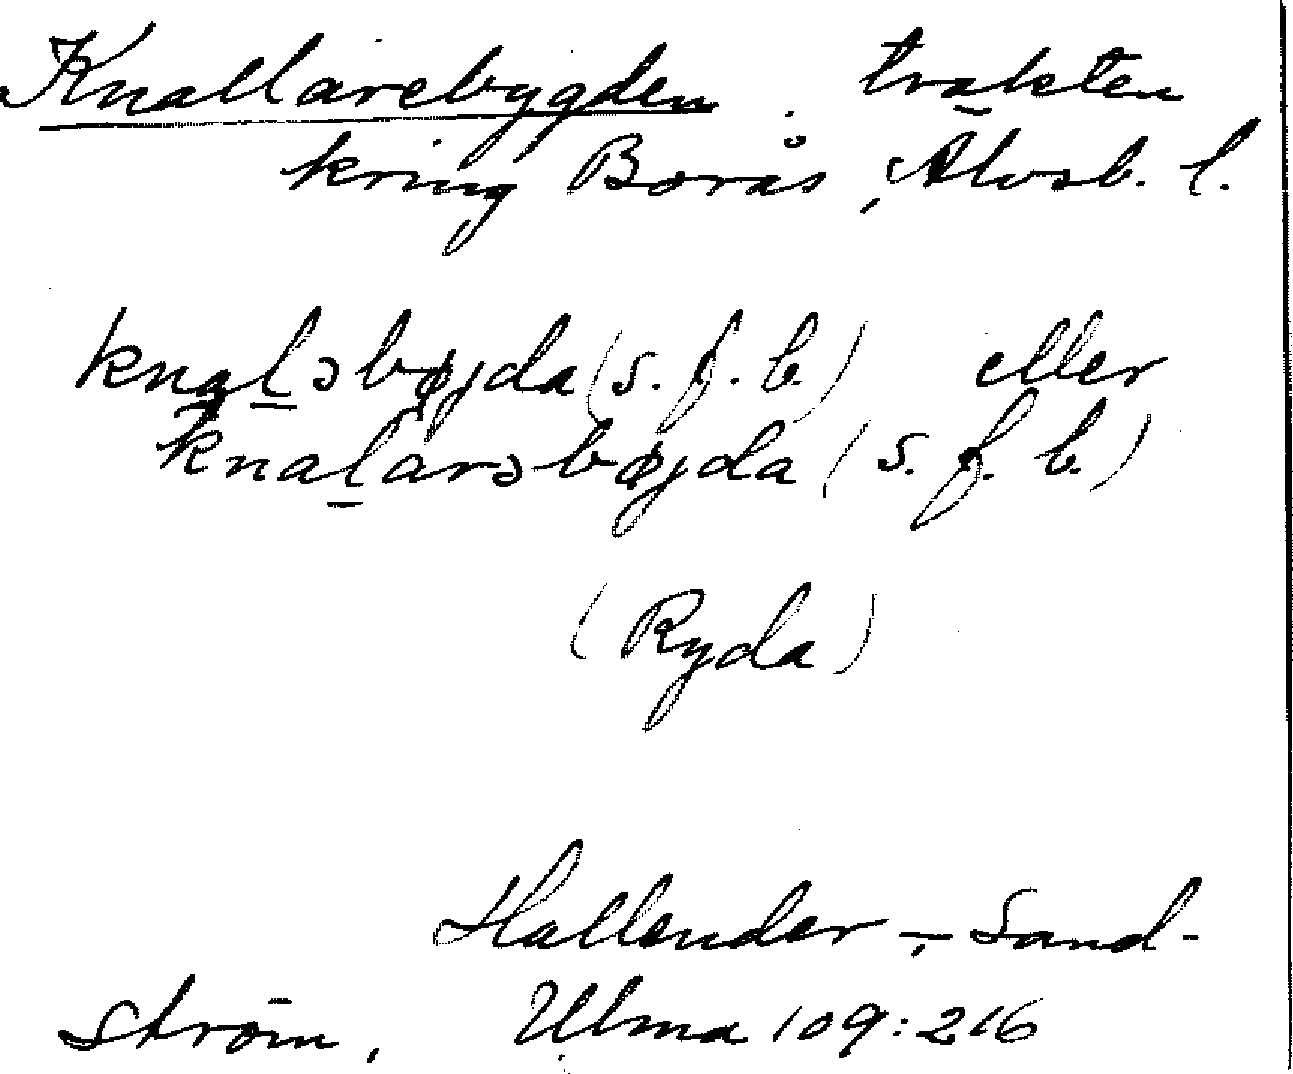 Knallarebygden. trakten
kring Borås, Älvsb. l.
knaləbøjda (s. f. b.) eller
knalarəbøjda (s. f. b.)
(Ryda)
Hallender - Sand-
ström, Ulma 109:216